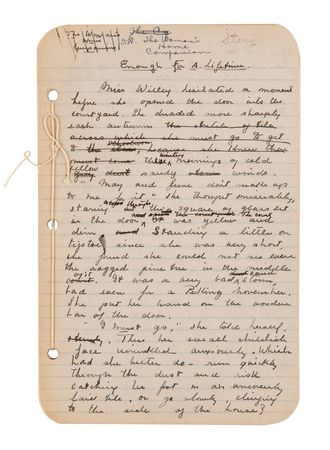 OR The Woman's
Home
Companion
Story
Enough for a Lifetime
Miss Willey hesitated a moment
before she opened the door into the
courtyard. She dreaded more sharply
each autumn
across which must go to get
to the because she knew these
must come these mornings of cold
yellow dust sandy winds.
"May and June don't make up
to me for it" she thought miserably,
staring at the square of glass set
in the door. It was yellow and
dim and Standing a little on
tiptoe, since she was very short,
she found she could not see even
the ragged pine tree in the middle
of it. It was a very bad storm,
bad even for a Peking November.
She put her hand on the wooden
bar of the door.
"I must go," she told herself
Then her small childish
face wrinkled anxiously. Which
had she better do - run quickly
through the dust and risk
catching her foot in an unevenly
laid tile, or go slowly, clinging
to the side of the house?